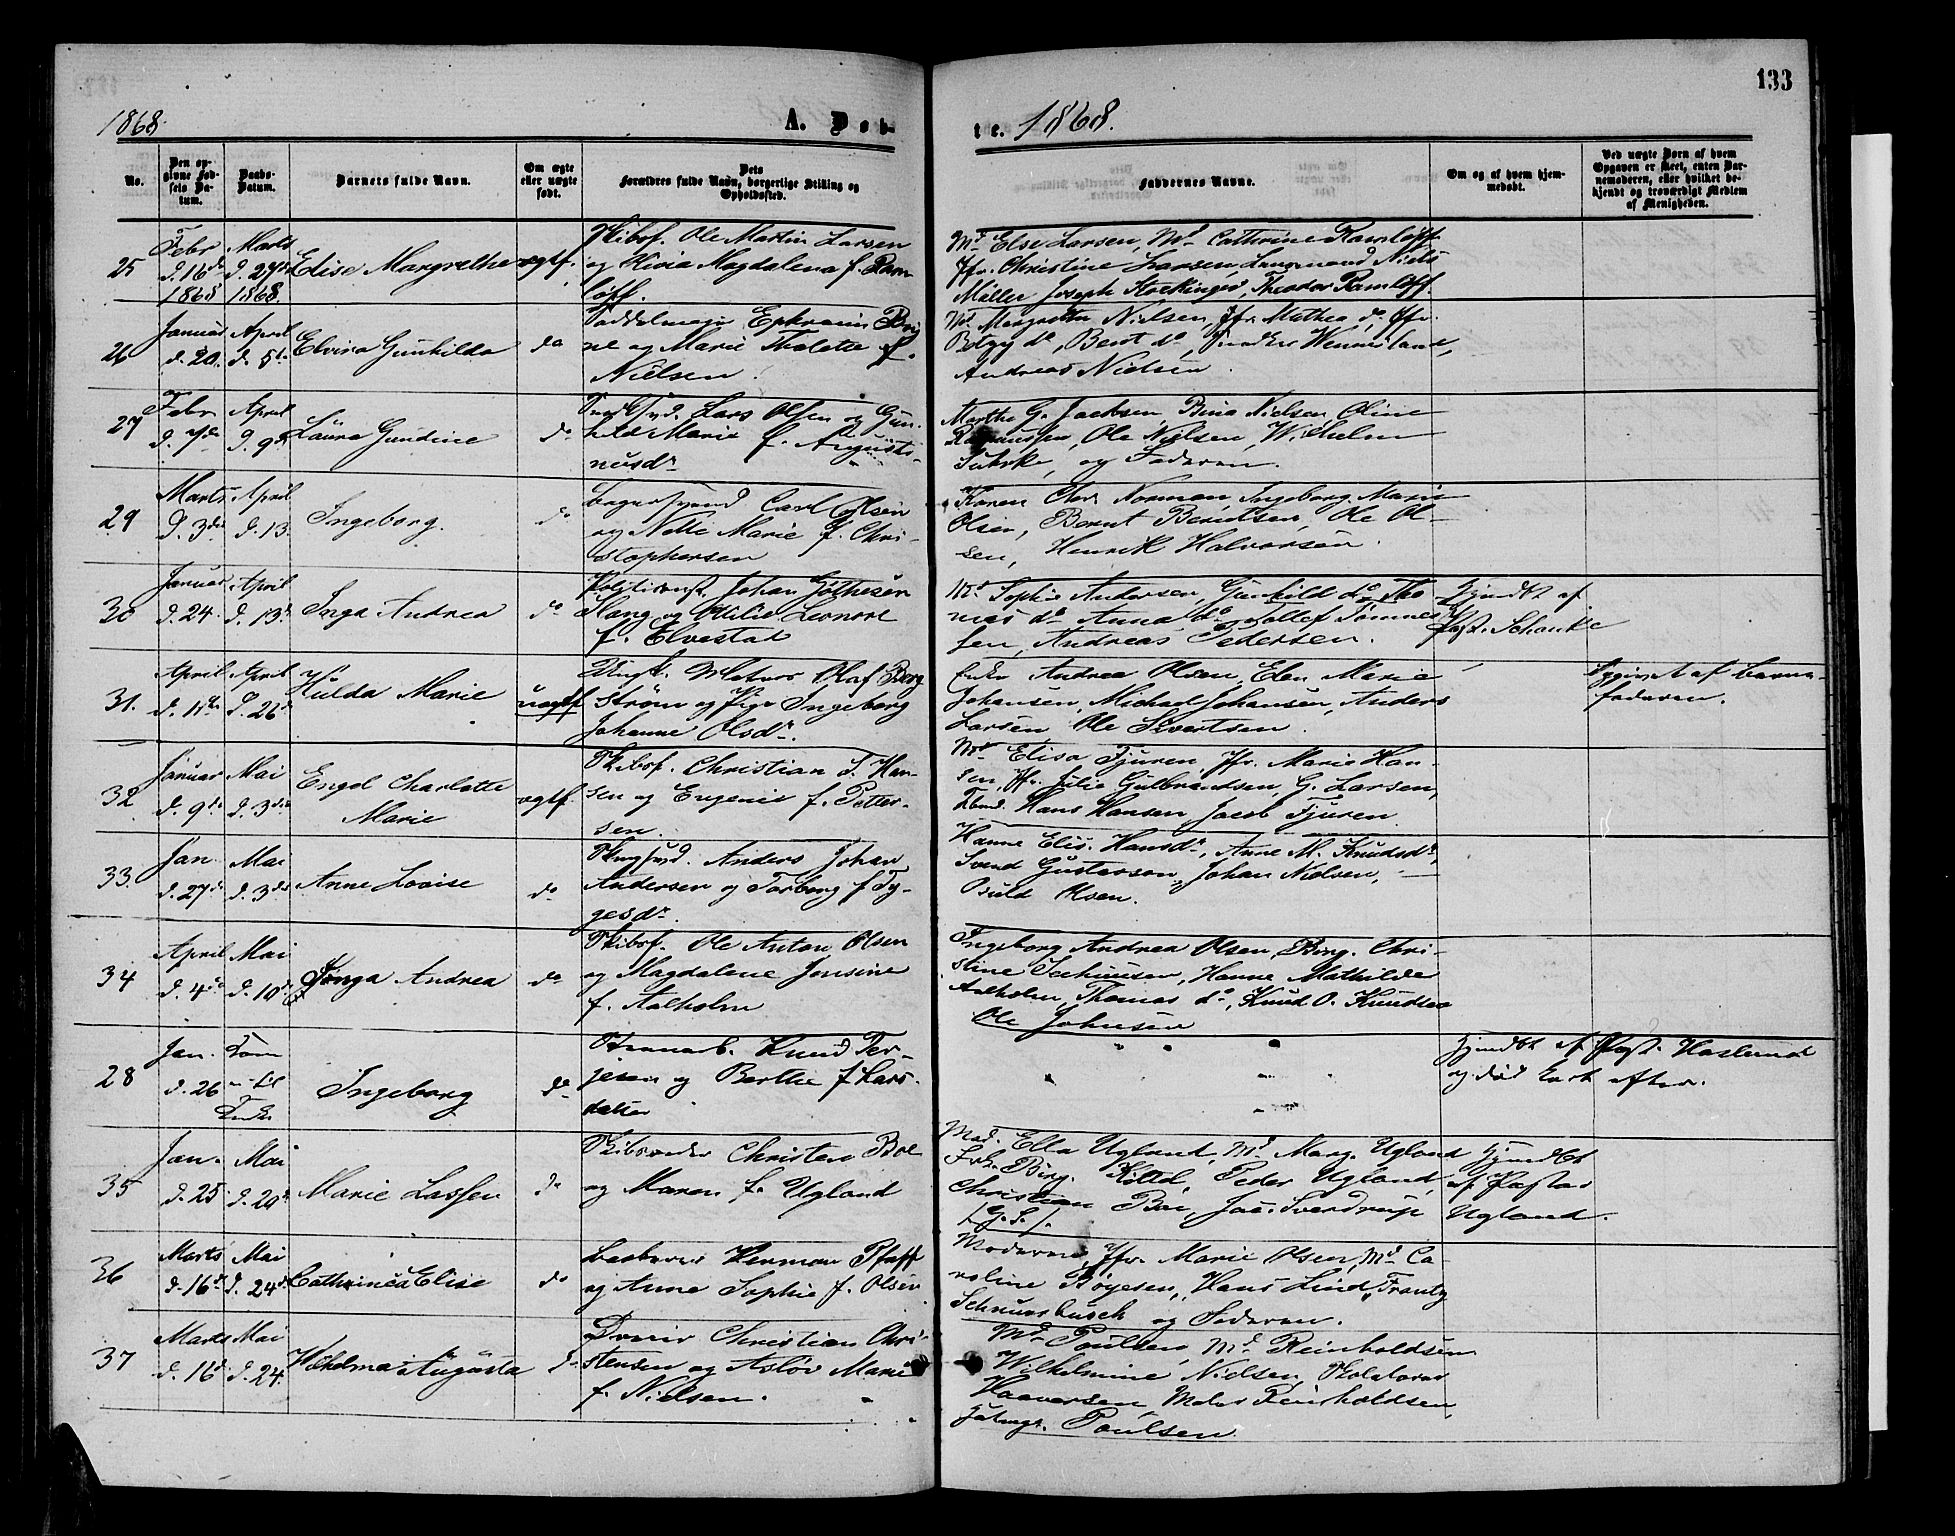 133
1868.
A. Døb-
te. 1868.
No.
Den op-
givne Fød-
sels Da-
tum.
Daabs-
Datum.
Barnets fulde Navn.
Om ægte
eller uægte
født.
Dets
Forældres fulde Navn, borgerlige Stilling og
Opholdssted.
Faddernes Navne.
Om og af hvem hjem-
medøbt.
Ved uægte Børn af hvem
Opgaven er skeet, enten Bar-
nemoderen, eller hvilket be-
kjendt og troværdigt Medlem
af Menigheden.
25
Febr
d. 16de
1868
Marts
d. 27de
1868.
Elise Margrethe
ægtf.
Skibsf. Ole Martin Larsen
og Magdalena f. Ram
løff.
Md Else Larsen, Md Cathrine Ramløff
Jfr. Christine Larsen, Niels
Møller Joseph Theodor Ramløff.
26
Januar
d. 20.
April
d. 5te
Elvira Gunhilda
do
Ephraim
og Marie Thalette f.
Nielsen.
Md. Margrethe Nielsen, Jfr. Mathea do, Jfr.
do, Bent do, Wennesland,
Andreas Nielsen.
27
Febr
d. 7de
April
d. 9de
Laura Gundine
do
Lars Olsen og Gun-
hild Marie f. Augusti-
nusdr
Marthe G. Jacobsen, Bina Nielsen, Oline
Rasmussen, Ole Nielsen, Wilhelm
og Faderen.
29
Marts
d. 3die
April
d. 13
Ingeborg.
do
Carl Olsen
og Nelle Marie f. Chri-
stophersen
Karen Chr. Norman, Ingeborg Marie
Olsen, Bernt Berntsen, Ole Ol-
sen, Henrik Halvorsen.
30
Januar
d. 24.
April
d. 13de
Inga Andrea
do
Johan
Hang og Julie Leonore
f. Elvestad
Md Sophie Andersen, Gunhild do Tho
mas do Anna do Tollef Tønnes
sen, Andreas Pedersen.
hjmdbt af
Past. Schanke
31.
April
d. 11te
April
d. 26de
Hulda Marie
uægtf
Ungk. Matros Olaf Berg
Strøm og Pige Ingeborg
Johanne Olsdr.
Enke Andrea Olsen, Elen Marie
Johansen, Michael Johansen, Anders
Larsen, Ole Sivertsen.
Opgivet af Barne-
faderen.
32
Januar
d. 9de
Mai
d. 3die
Engel Charlotte
Marie
ægtf.
Skibsf. Christian S. Han-
sen og Eugenie f. Petter-
sen.
Md Elisa Tjuren, Jfr. Marie Han-
sen, Jfr. Julie Gulbrandsen, G. Larsen,
Hans Hansen, Jacob Tjuren.
33.
Jan.
d. 27de
Mai
d. 3die
Anne Lovise
do
Anders Johan
Andersen og Torborg f. Ty-
gesdr.
Hanne Elis. Hansdr, Anne M. Knudsdr,
Svend Gustavson, Johan Nielsen,
Osuld Olsen.
34
April
d. 4de
Mai
d. 10de
Inga Andrea
do
Skibsf. Ole Anton Olsen
og Magdalene Jonsine
f. Aalholm
Ingeborg Andrea Olsen, Birg. Chri-
stine Seehuusen, Hanne Mathilde
Aalholm, Thomas do, Knud O. Knudsen
Ole Johnsen
28
Jan.
d. 26
Ingeborg
do
Knud Ter-
jesen og Berthe f. Lars-
datter
hjmdbt af Past. Haslund
og død kort efter.
35
Jan.
d. 25
Mai
d. 20de
Marie Lassen
do
Skibsreder Christen Boe
og Maren f. Ugland
Mad. Ella Ugland, Md Marg. Ugland
Frk. Birg. Kittil, Peder Ugland,
Christian Boe, Jac. Sverdrup
/: G. S. :/.
hjmdbt
af Pastor
Ugland.
36
Marts
d. 16de
Mai
d. 24de
Cathrinea Elise
do
Herman Pfaff
og Anne Sophie f. Olsen
Moderen, Jfr. Marie Olsen, Md Ca-
roline Bøyesen, Hans Lind, Frantz
Schnurrbusch og Faderen.
37
Marts
d. 16de
Mai
d. 24.
Wilhelma Augusta
do
Christian Chri-
stensen og Asløv Marie
f. Nielsen.
Md Poulsen, Md Reinholdsen
Wilhelmine Nielsen, Skolelærer
Haaversen, Maler Reinholdsen,
Poulsen.